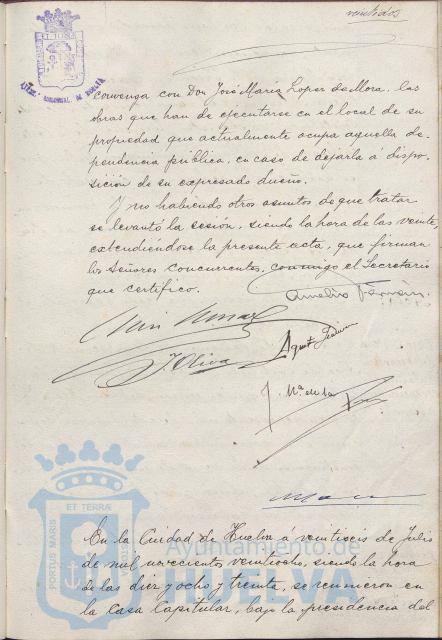 veintidos
convenga con Don José María Lopez de Mora, las
obras que han de ejecutarse en el local de su
propiedad que actualmente ocupa aquella de-
pendencia pública, en caso de dejarla á dispo-
sición de su expresado dueño.
Y no habiendo otros asuntos de que tratar
se levantó la sesión, siendo la hora de las veinte,
extendiéndose la presente acta, que firman
los Señores concurrentes, conmigo el Secretario
que certifico.
J. Oliva
J. Mª de la
PORTUS MARIS
ET TERRÆ
Ayuntamiento de
HUELVA
En la Ciudad de Huelva á veintiseis de Julio
de mil novecientos veintiocho, siendo la hora
de las diez y ocho y treinta, se reunieron en
la Casa Capitular, bajo la presidencia del